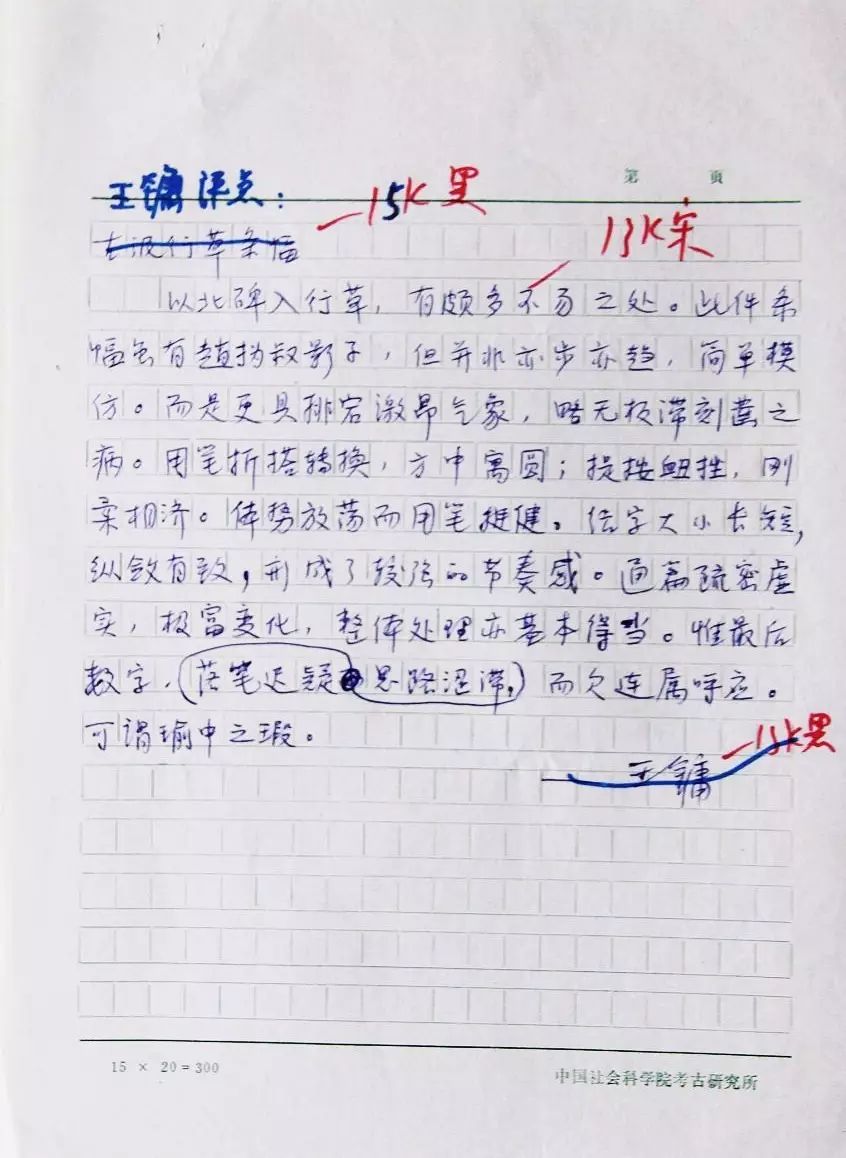 第 页
王镛评点：
15K黑
行草条幅
13K宋
以北碑入行草，有颇多不易之处。此件条
幅虽有赵㧑叔影子，但并非亦步亦趋，简单模
仿。而是更具排宕激昂气象，略无板滞刻凿之
病。用笔折搭转换，方中寓圆；提按扭挫，刚
柔相济。体势放荡而用笔挺健。结字大小长短，
纵敛有致，形成了较强的节奏感。通篇疏密虚
实，极富变化，整体处理亦基本得当。惟最后
数字，（落笔迟疑 思路涩滞，）而欠连属呼应。
可谓瑜中之瑕。
13K黑
——王镛
15 × 20＝300
中国社会科学院考古研究所